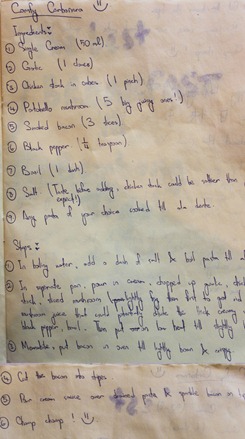 Comfy Carbonara
Ingredients:
① Single Cream (50 ml)
② Garlic (1 clove)
③ Chicken stock in cubes (1 pinch)
④ Portobello mushroom (5 big juicy ones!)
⑤ Smoked bacon (3 slices)
⑥ Black pepper (¼ teaspoon)
⑦ Basil (1 dash)
⑧ Salt (Taste before adding, chicken stock could be saltier than expected!)
⑨ Any pasta of your choice cooked till al dente.
Steps:
① In boiling water, add a dash of salt & boil pasta till al
② In separate pan, pour in cream, chopped up garlic, chicken
stock, sliced mushroom
mushroom juice that could
black pepper, basil. Then put on low heat till slightly
③ Meanwhile, put bacon in oven till lightly brown & crispy
④ Cut the bacon into strips.
⑤ Pour cream sauce over drained pasta & sprinkle bacon on
⑥ Chomp chomp!